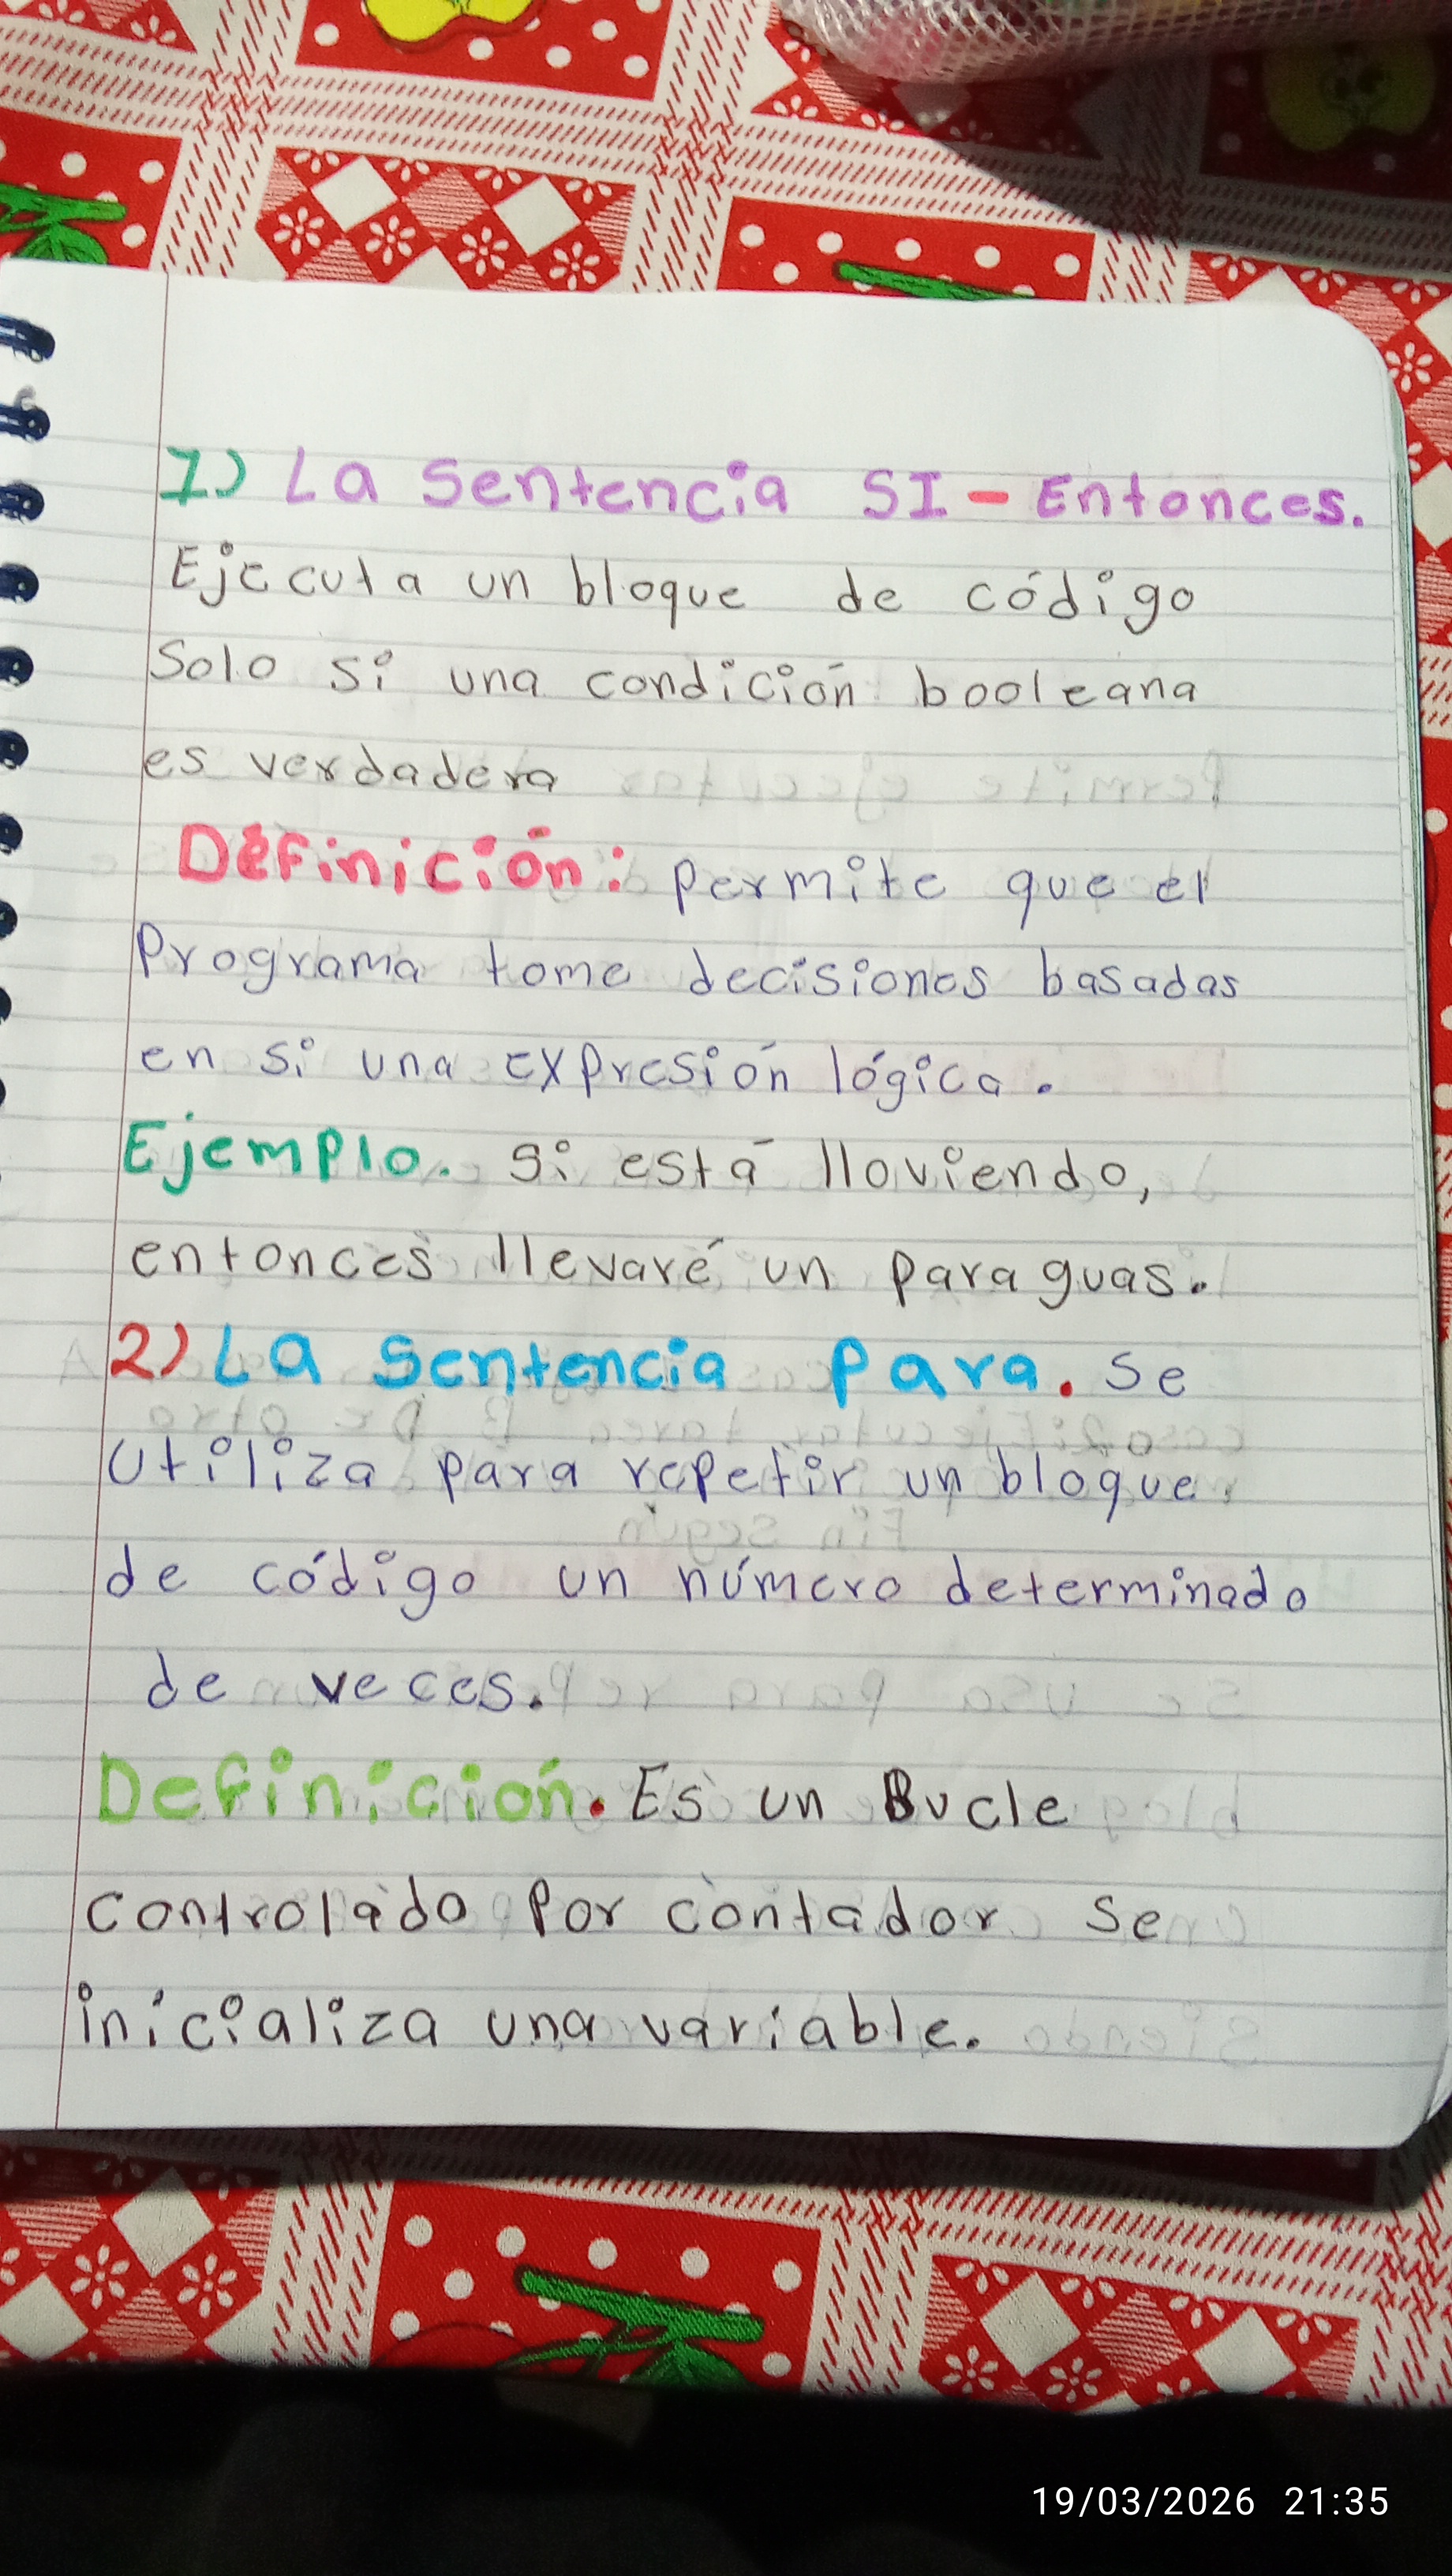 1) La Sentencia SI - Entonces.
Ejecuta un bloque de código
Solo si una condición booleana
es verdadera
Definición: Permite que el
Programa tome decisiones basadas
en si una expresión lógica.
Ejemplo. Si está lloviendo,
entonces llevaré un paraguas.
2) La Sentencia Para. Se
Utiliza para repetir un bloque
de código un número determinado
de veces.
Definición. Es un Bucle
controlado Por contador se
inicializa una variable.
19/03/2026 21:35